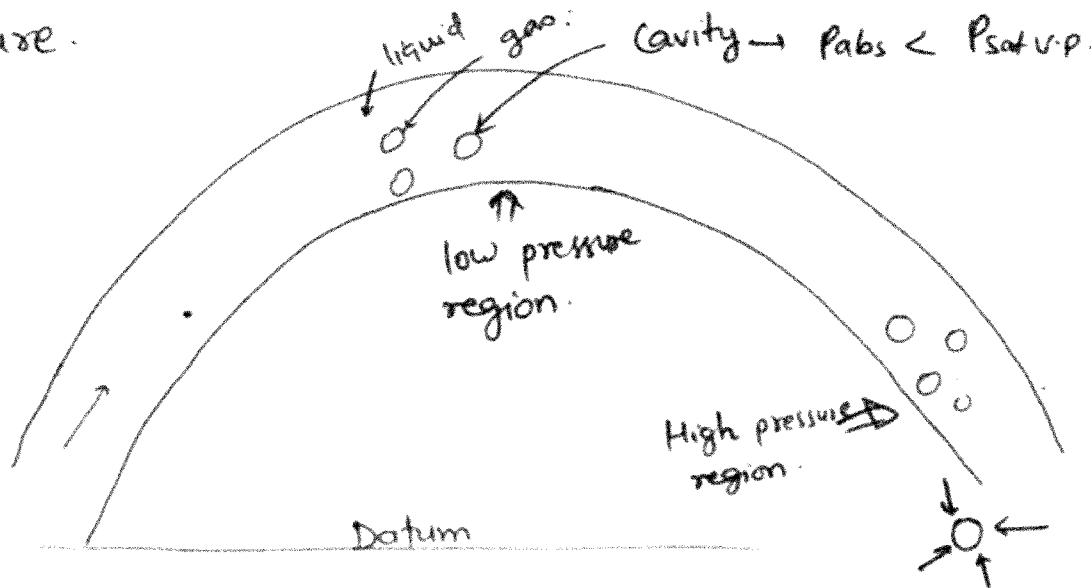 ure.
liquid gas:
Cavity → Pabs < Psat v.p.
low pressure
region.
High pressure
region.
Datum